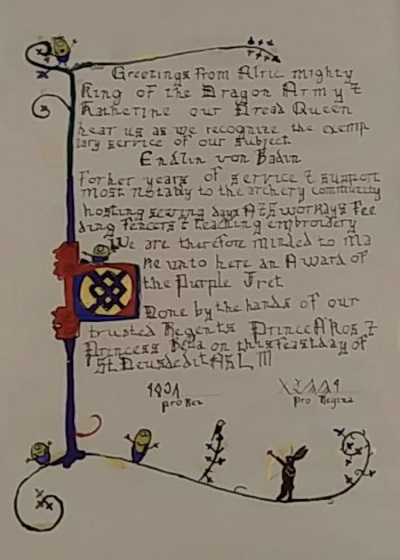 Greetings from Alric mighty
King of the Dragon Army &
Katherine our Dread Queen
hear us as we recognize the exemp
lary service of our subject
Endlin von Badin
For her years of service & support
most notably to the archery community
hosting sewing days A&S workdays Fee
ding fencers & teaching embroidery
We are therefore minded to ma
ke unto here an Award of
the Purple Fret
Done by the hands of our
trusted Regents Prince A'Kos &
Princess on this feast day of
St. Deusdedit AS L III
Pro Rex
Pro Regina